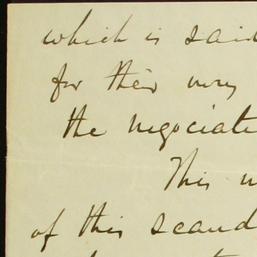 which is said
for their very
the negociate
This
of this scand